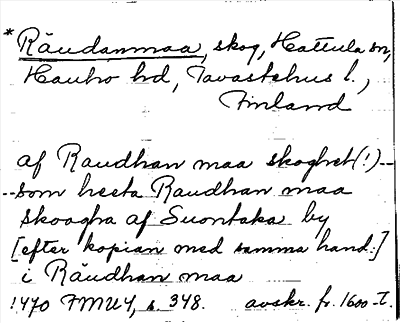 *Räudanmaa, skog, Hattula sn,
Hauho hd, Tavastehus l.,
Finland
af Raudhan maa skoghet (!) --
-- som heeta Raudhan maa
skoogha af Suontaka by
[efter kopian med samma hand:]
i Räudhan maa
1470 FMU4, s. 348. avskr. fr. 1600-t.